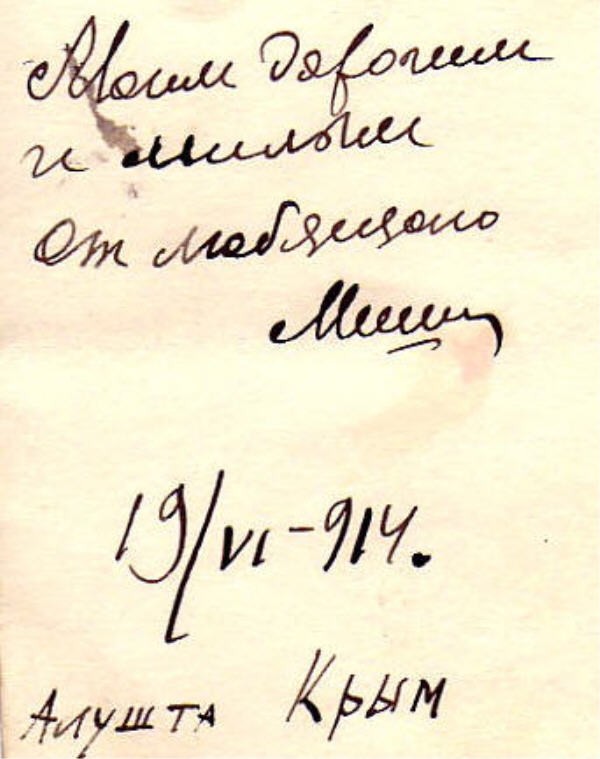 Моим дорогим
и милым
от любящего
Миши
19/VI-914.
Алушта Крым